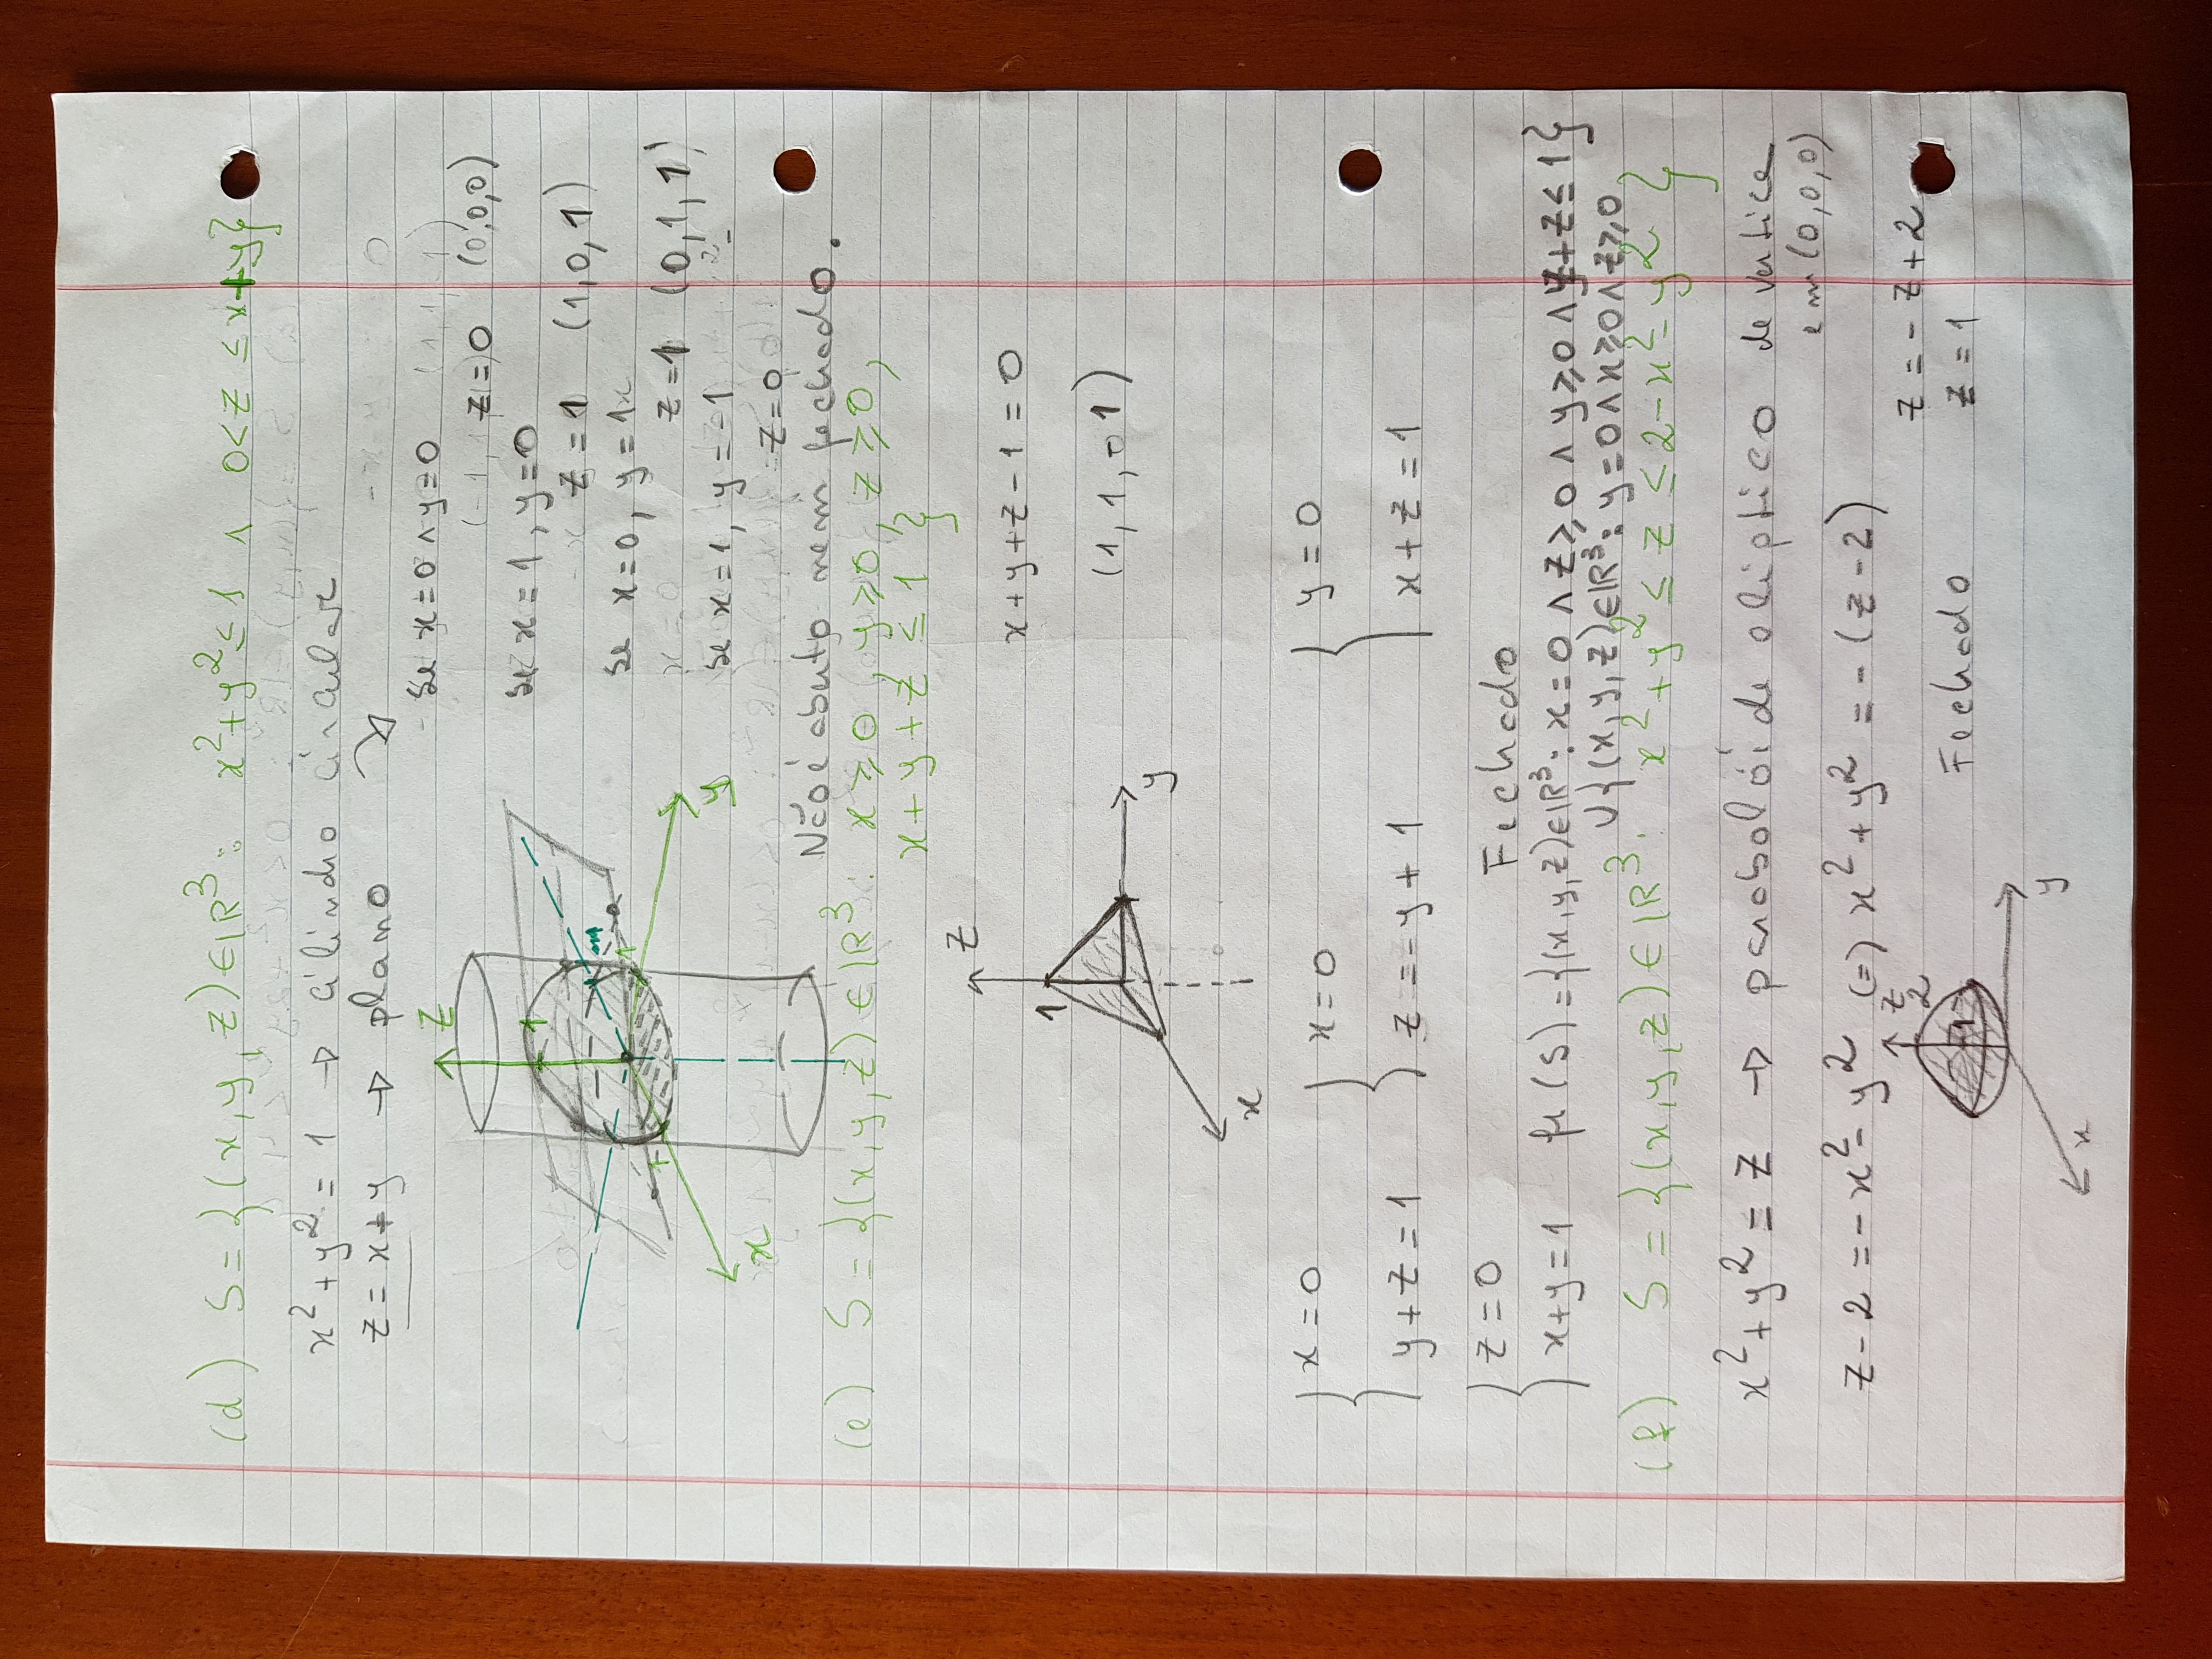 (d) S = {(x, y, z) ∈ ℝ³: x² + y² ≤ 1 ∧ 0 < z ≤ x+y}
x² + y² = 1 → cilindro circular
z = x+y → plano
se x=0 ∧ y=0
z=0 (0,0,0)
se x=1, y=0
z=1 (1,0,1)
se x=0, y=1
z=1 (0,1,1)
se x=1, y=-1
z=0
z
1
1
1
x
y
Não é aberto nem fechado.
(e) S = {(x,y,z) ∈ ℝ³: x ≥ 0, y ≥ 0, z ≥ 0,
x + y + z ≤ 1 }
z
x + y + z - 1 = 0
1
(1, 1, 01)
y
x
{ x = 0 { x = 0 { y = 0
y + z = 1 z = -y + 1 x + z = 1
{ z = 0 Fechado
x+y = 1 fr(S) = {(x,y,z) ∈ ℝ³: x = 0 ∧ z ≥ 0 ∧ y ≥ 0 ∧ y+z ≤ 1}
∪ {(x, y, z) ∈ ℝ³: y = 0 ∧ x ≥ 0 ∧ z ≥ 0
(f) S = {(x,y,z) ∈ ℝ³: x² + y² ≤ z ≤ 2 - x² - y² }
x² + y² = z → parabolóide elíptico de vertice
em (0,0,0)
z - 2 = -x² - y² (=) x² + y² = -(z-2)
z
2
1
z = -z + 2
Fechado z = 1
y
x